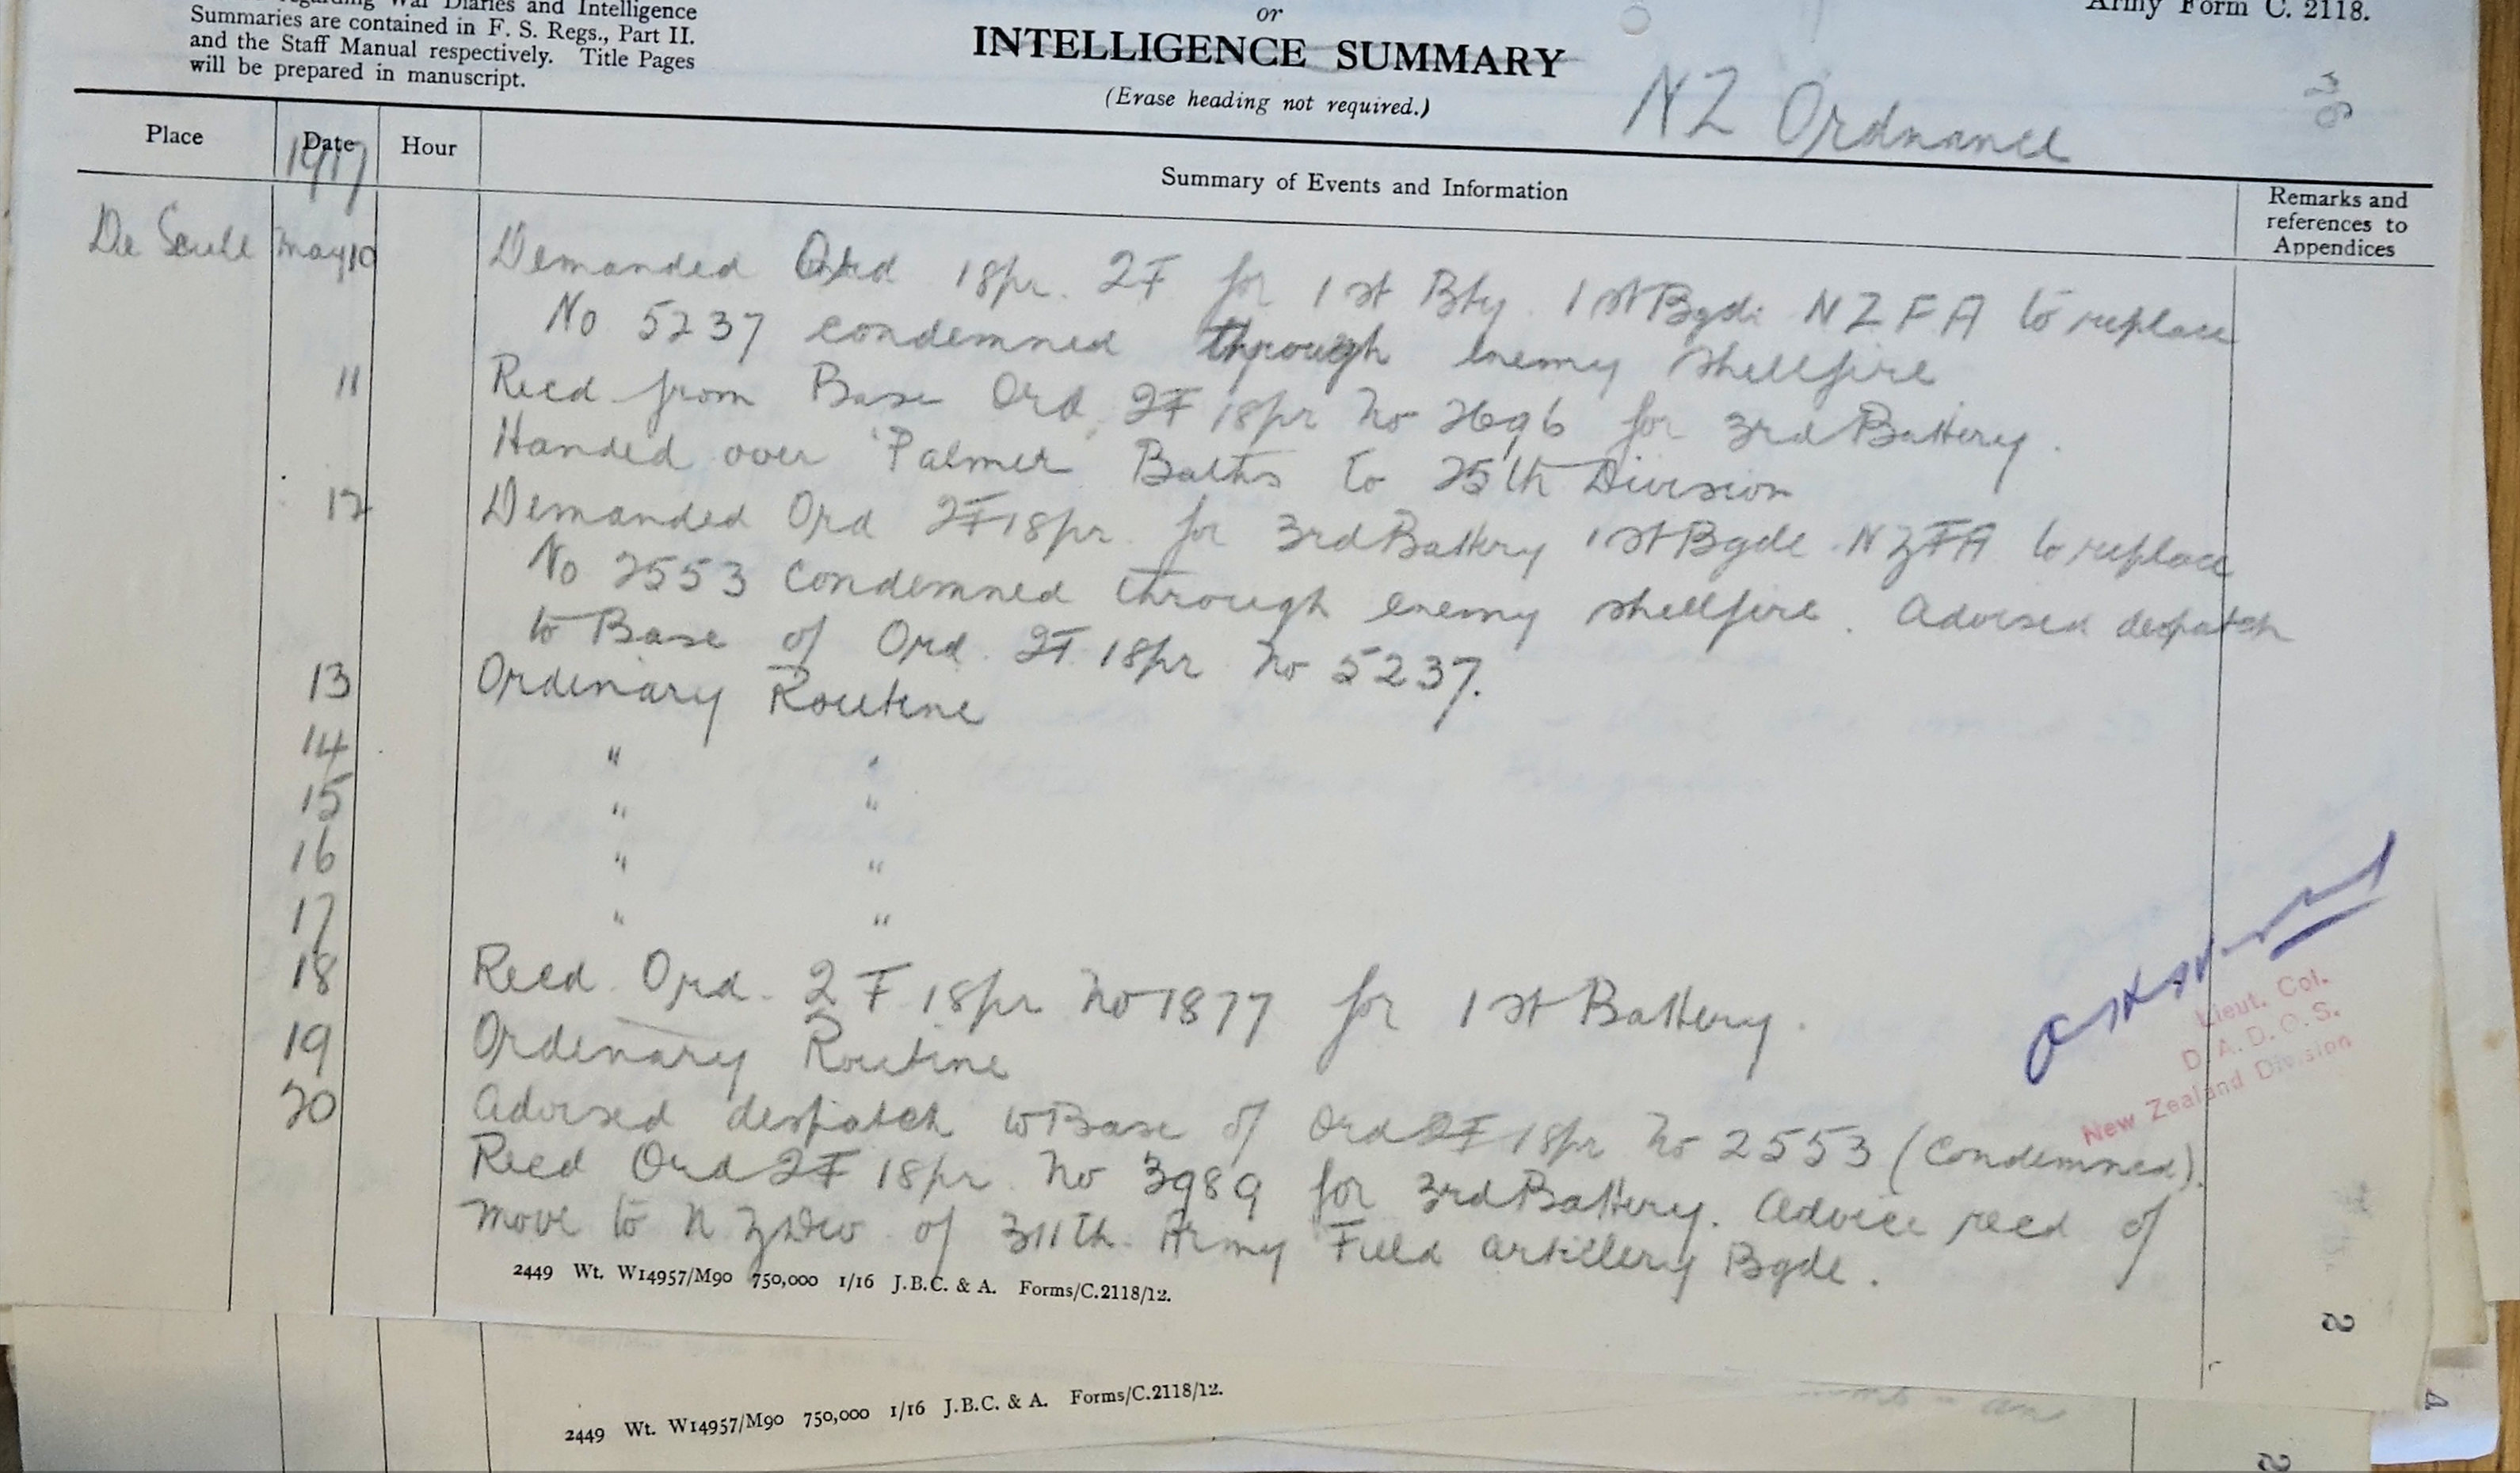 War Diaries and Intelligence
Summaries are contained in F. S. Regs., Part II.
and the Staff Manual respectively. Title Pages
will be prepared in manuscript.
or
INTELLIGENCE SUMMARY
(Erase heading not required.)
Army Form C. 2118.
NZ Ordnance
Place
Date
1917
Hour
Summary of Events and Information
Remarks and
references to
Appendices
De Seule May 10 Demanded Ord 18pr. 2F for 1st Bty. 1st Bgde NZFA to replace
No 5237 condemned through enemy shellfire
11 Recd from Base Ord 2F 18pr No 2696 for 3rd Battery.
Handed over 'Palmer Baths to 25th Division
12 Demanded Ord 2F 18pr. for 3rd Battery 1st Bgde NZFA to replace
No 2553 condemned through enemy shellfire. Advised despatch
to Base of Ord. 2F 18pr No 5237.
13 Ordinary Routine
14 " "
15 " "
16 " "
17 " "
18 Recd Ord. 2F 18pr No 1877 for 1st Battery.
19 Ordinary Routine
20 Advised despatch to Base of Ord 2F 18pr No 2553 (Condemned).
Recd Ord 2F 18pr. No 3989 for 3rd Battery. Advice recd of
move to NZ Div of 311th Army Field Artillery Bgde.
Lieut. Col.
D. A. D. O. S.
New Zealand Division
2449 Wt. W14957/M90 750,000 1/16 J.B.C. & A. Forms/C.2118/12.
2
2449 Wt. W14957/M90 750,000 1/16 J.B.C. & A. Forms/C.2118/12.
4
2